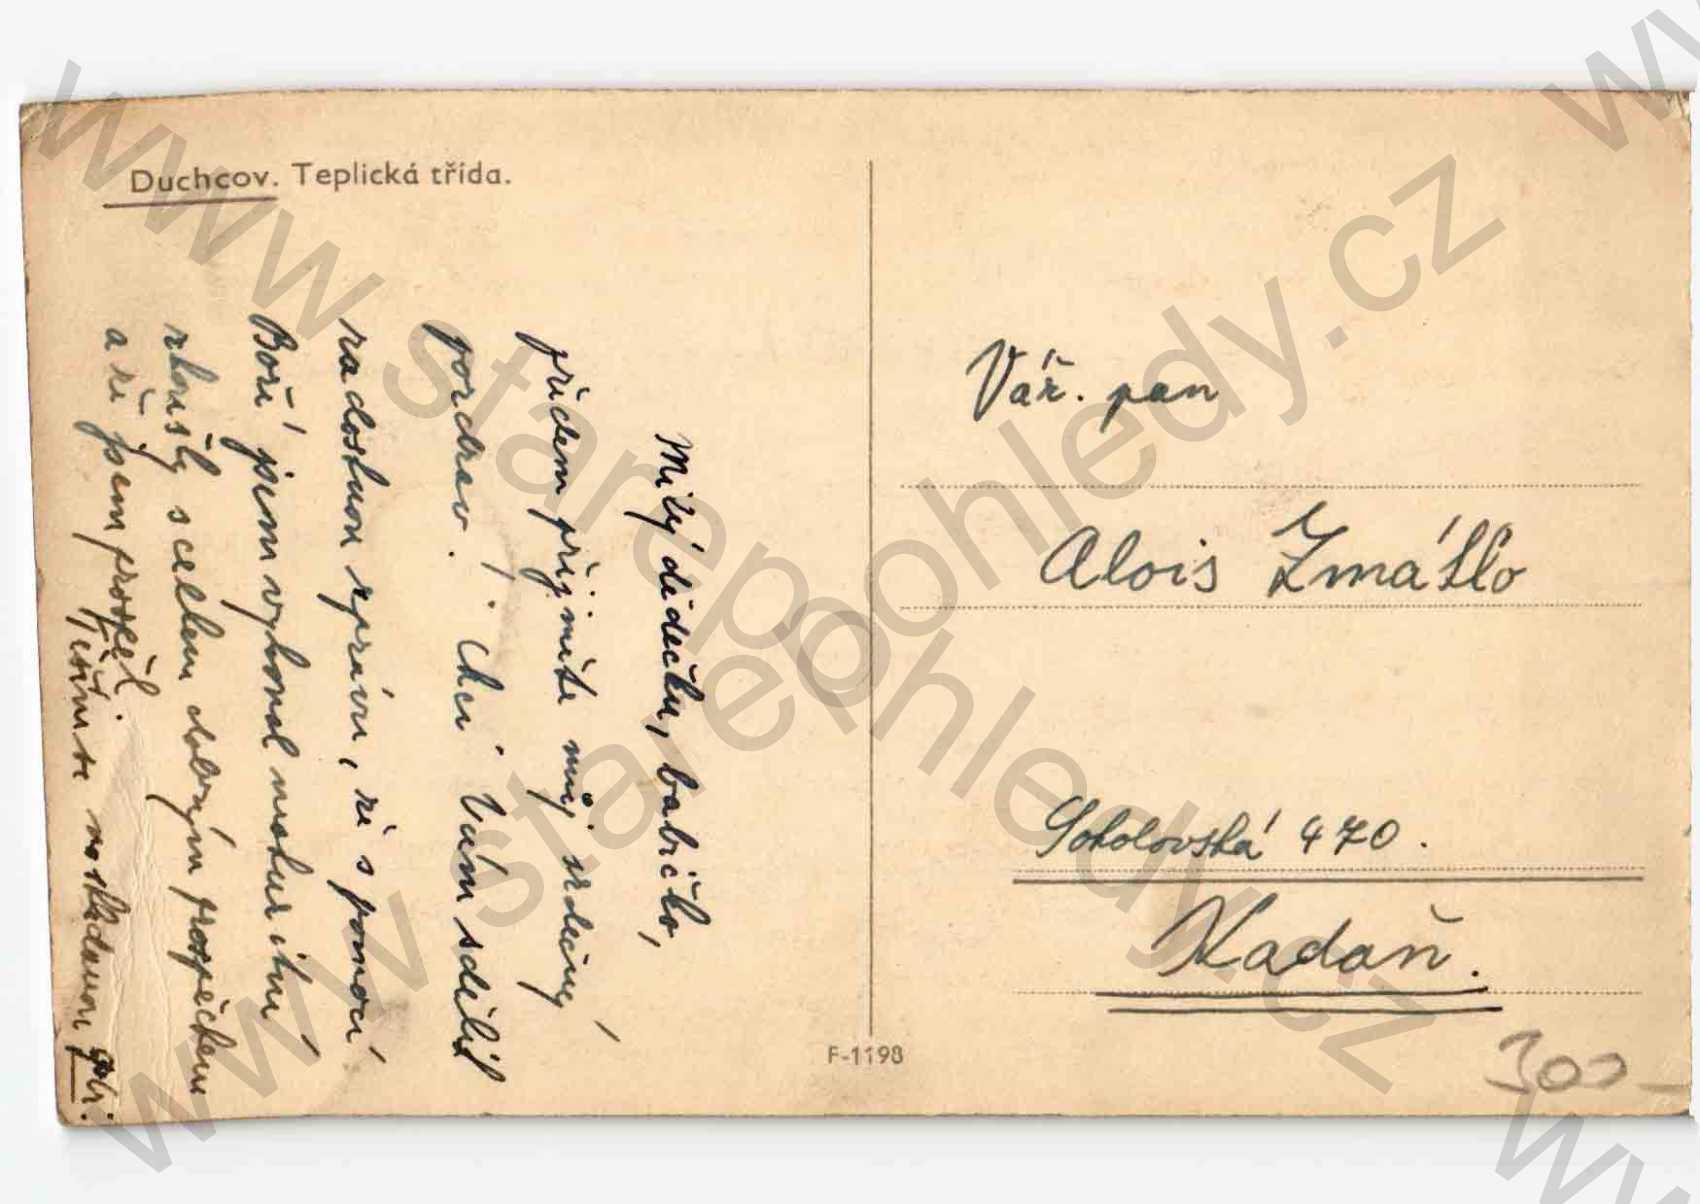 Duchcov. Teplická třída.
Milý dědečku, babičko,
předem přijměte můj srdečný
pozdrav. Chci Vám sdělit
radostnou zprávu, že s pomocí
Boží jsem vykonal maturitní
zkoušky s celkem dobrým prospěchem
a že jsem prospěl.
Těším se na shledanou
Váž. pan
Alois Zmátlo
Sokolovská 470.
Kadaň.
F-1198
300
www.starepohledy.cz
www.starepohledy.cz